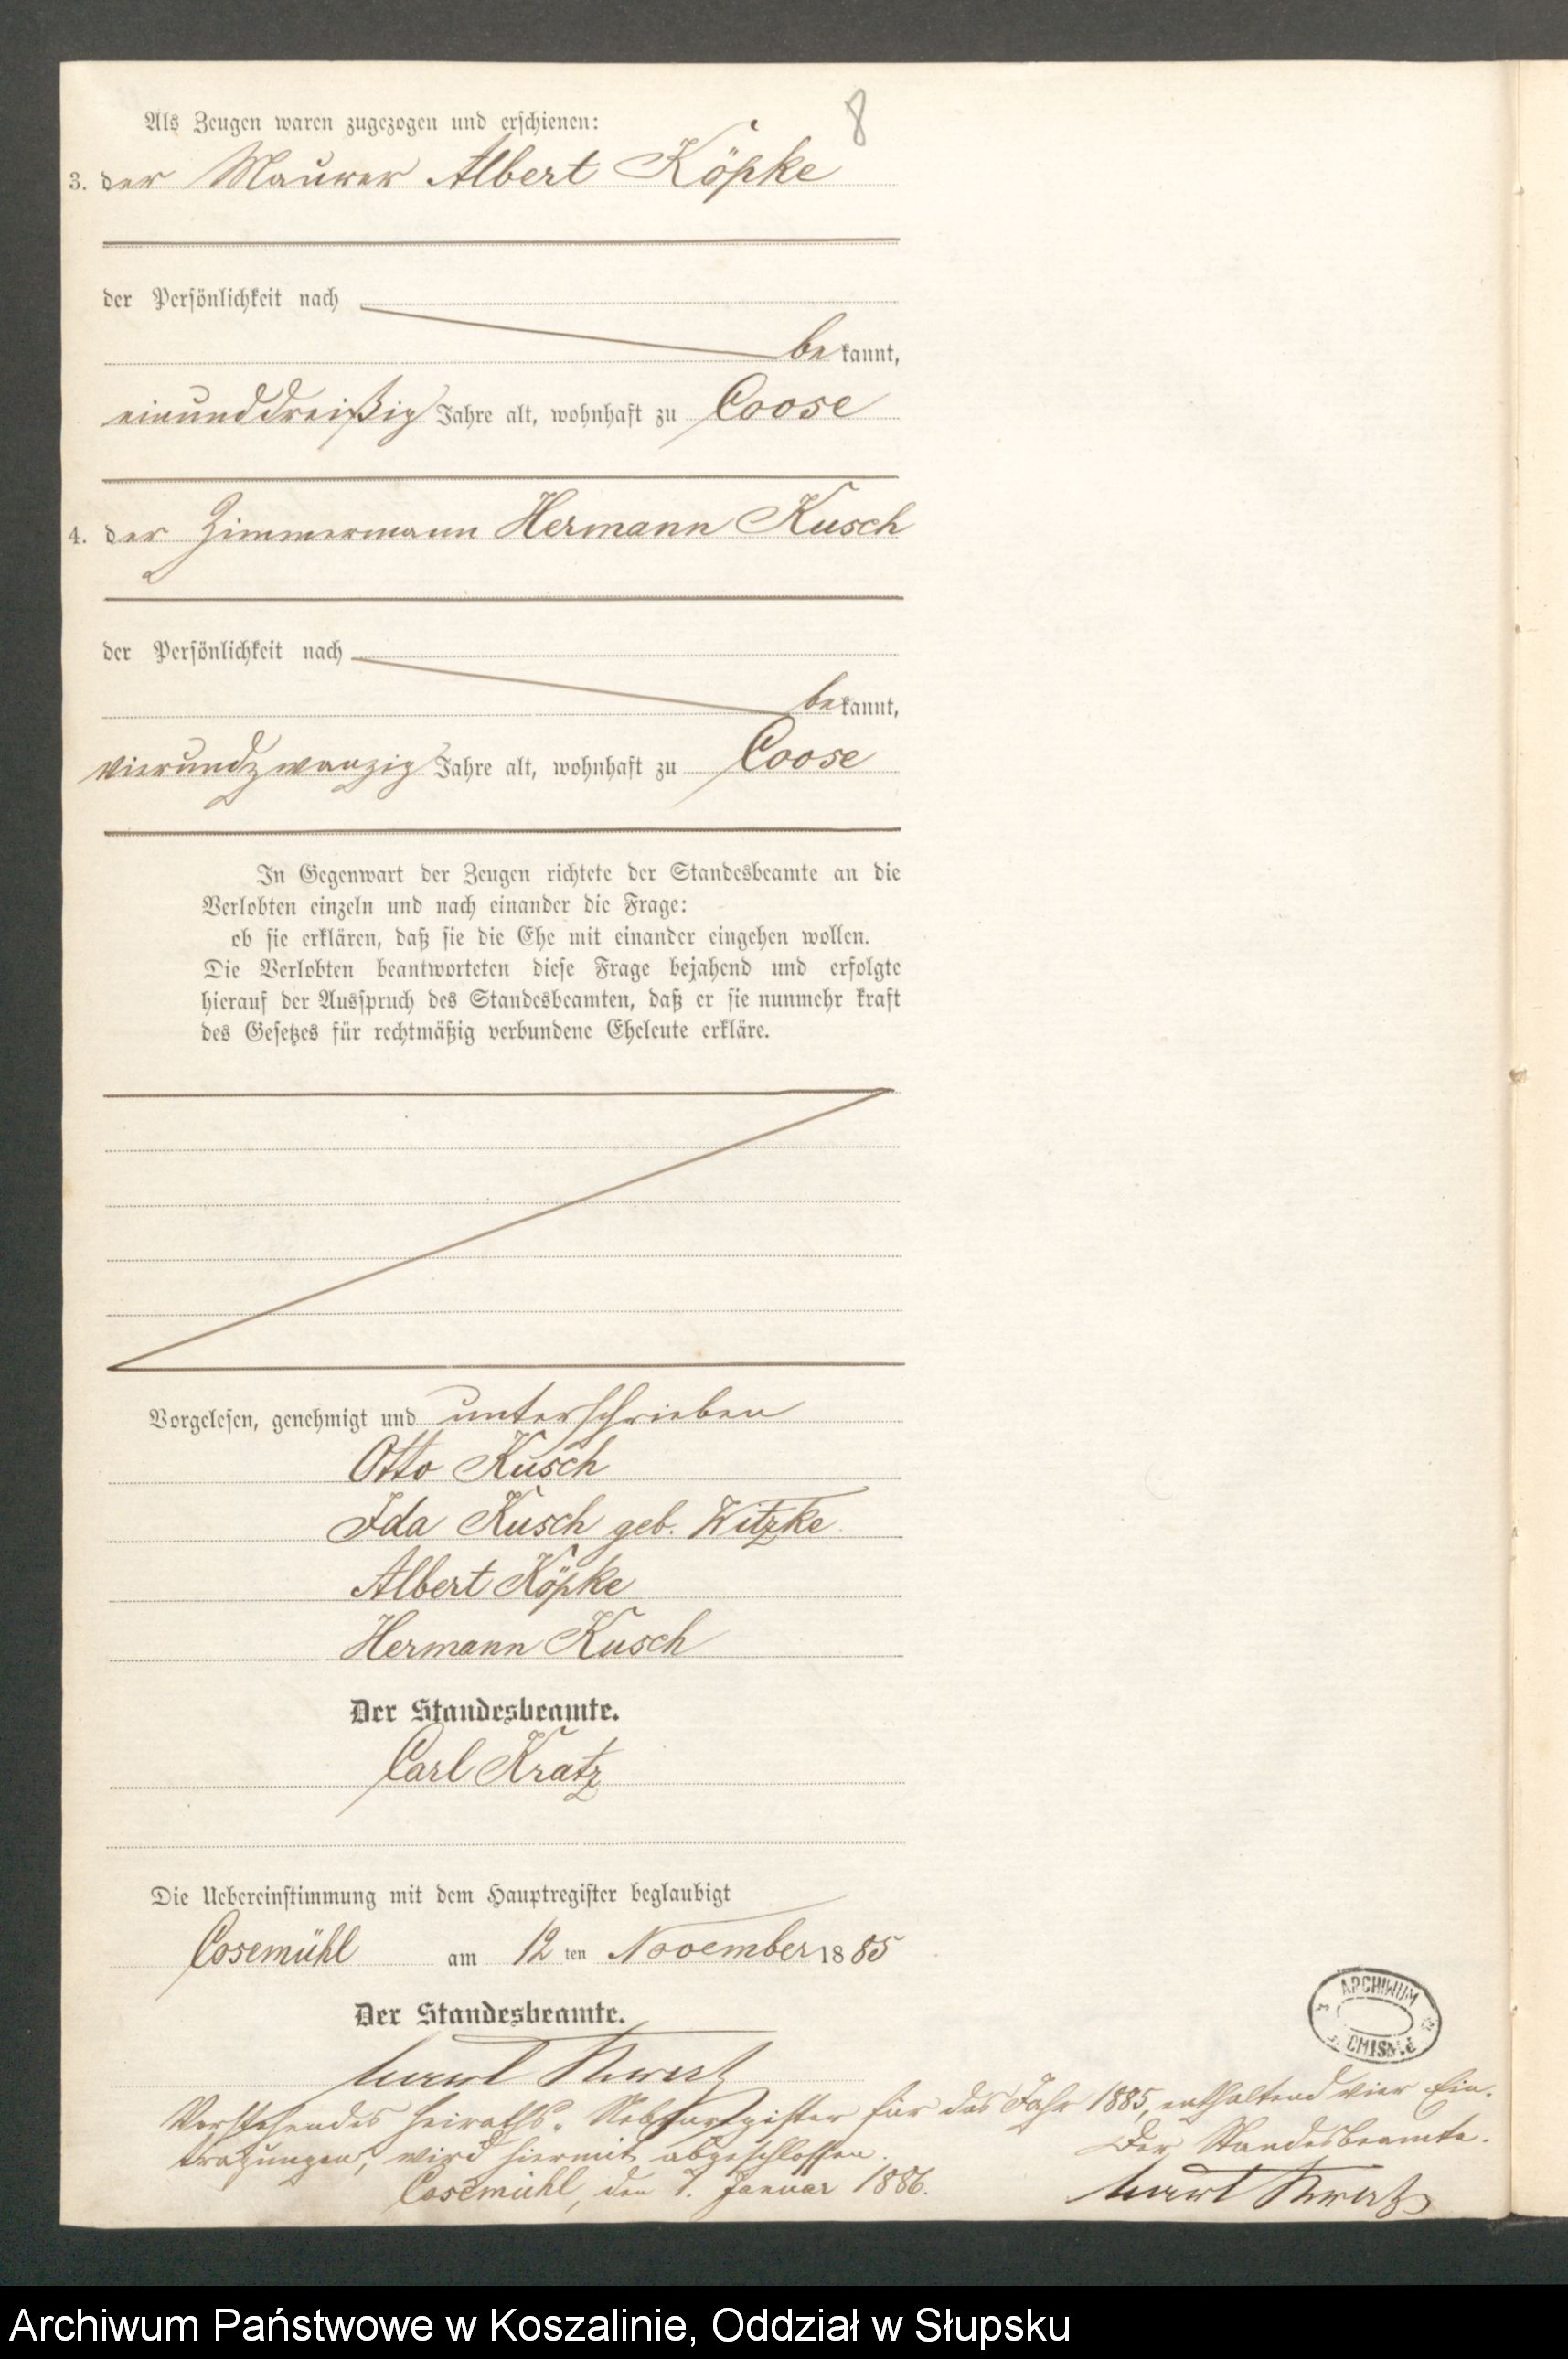 8
Als Zeugen waren zugezogen und erschienen:
3. der Maurer Albert Köpke
der Persönlichkeit nach
be kannt,
einunddreißig Jahre alt, wohnhaft zu Coose
4. der Zimmermann Hermann Kusch
der Persönlichkeit nach
be kannt,
vierundzwanzig Jahre alt, wohnhaft zu Coose
In Gegenwart der Zeugen richtete der Standesbeamte an die
Verlobten einzeln und nach einander die Frage:
ob sie erklären, daß sie die Ehe mit einander eingehen wollen.
Die Verlobten beantworteten diese Frage bejahend und erfolgte
hierauf der Ausspruch des Standesbeamten, daß er sie nunmehr kraft
des Gesetzes für rechtmäßig verbundene Eheleute erkläre.
Vorgelesen, genehmigt und unterschrieben
Otto Kusch
Ida Kusch geb. Witzke
Albert Köpke
Hermann Kusch
Der Standesbeamte.
Carl Kratz
Die Uebereinstimmung mit dem Hauptregister beglaubigt
Cosemühl am 12 ten November 1885
Der Standesbeamte.
Carl Kratz
Vorstehendes Heiraths-Nebenregister für das Jahr 1885, enthaltend vier Ein-
tragungen, wird hiermit abgeschlossen.
Cosemühl, den 1. Januar 1886.
Der Standesbeamte.
Carl Kratz
ARCHIWUM
Archiwum Państwowe w Koszalinie, Oddział w Słupsku